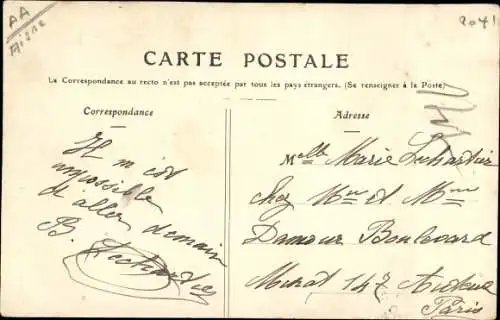 AA
Aisne
2041
CARTE POSTALE
La Correspondance au recto n'est pas acceptée par tous les pays étrangers. (Se renseigner à la Poste)
Correspondance
Il m'est
impossible
d'aller demain
B.
Adresse
Melle Marie
chez Mr et Mme
Damour Boulevard
Murat 147 Auteuil
Paris